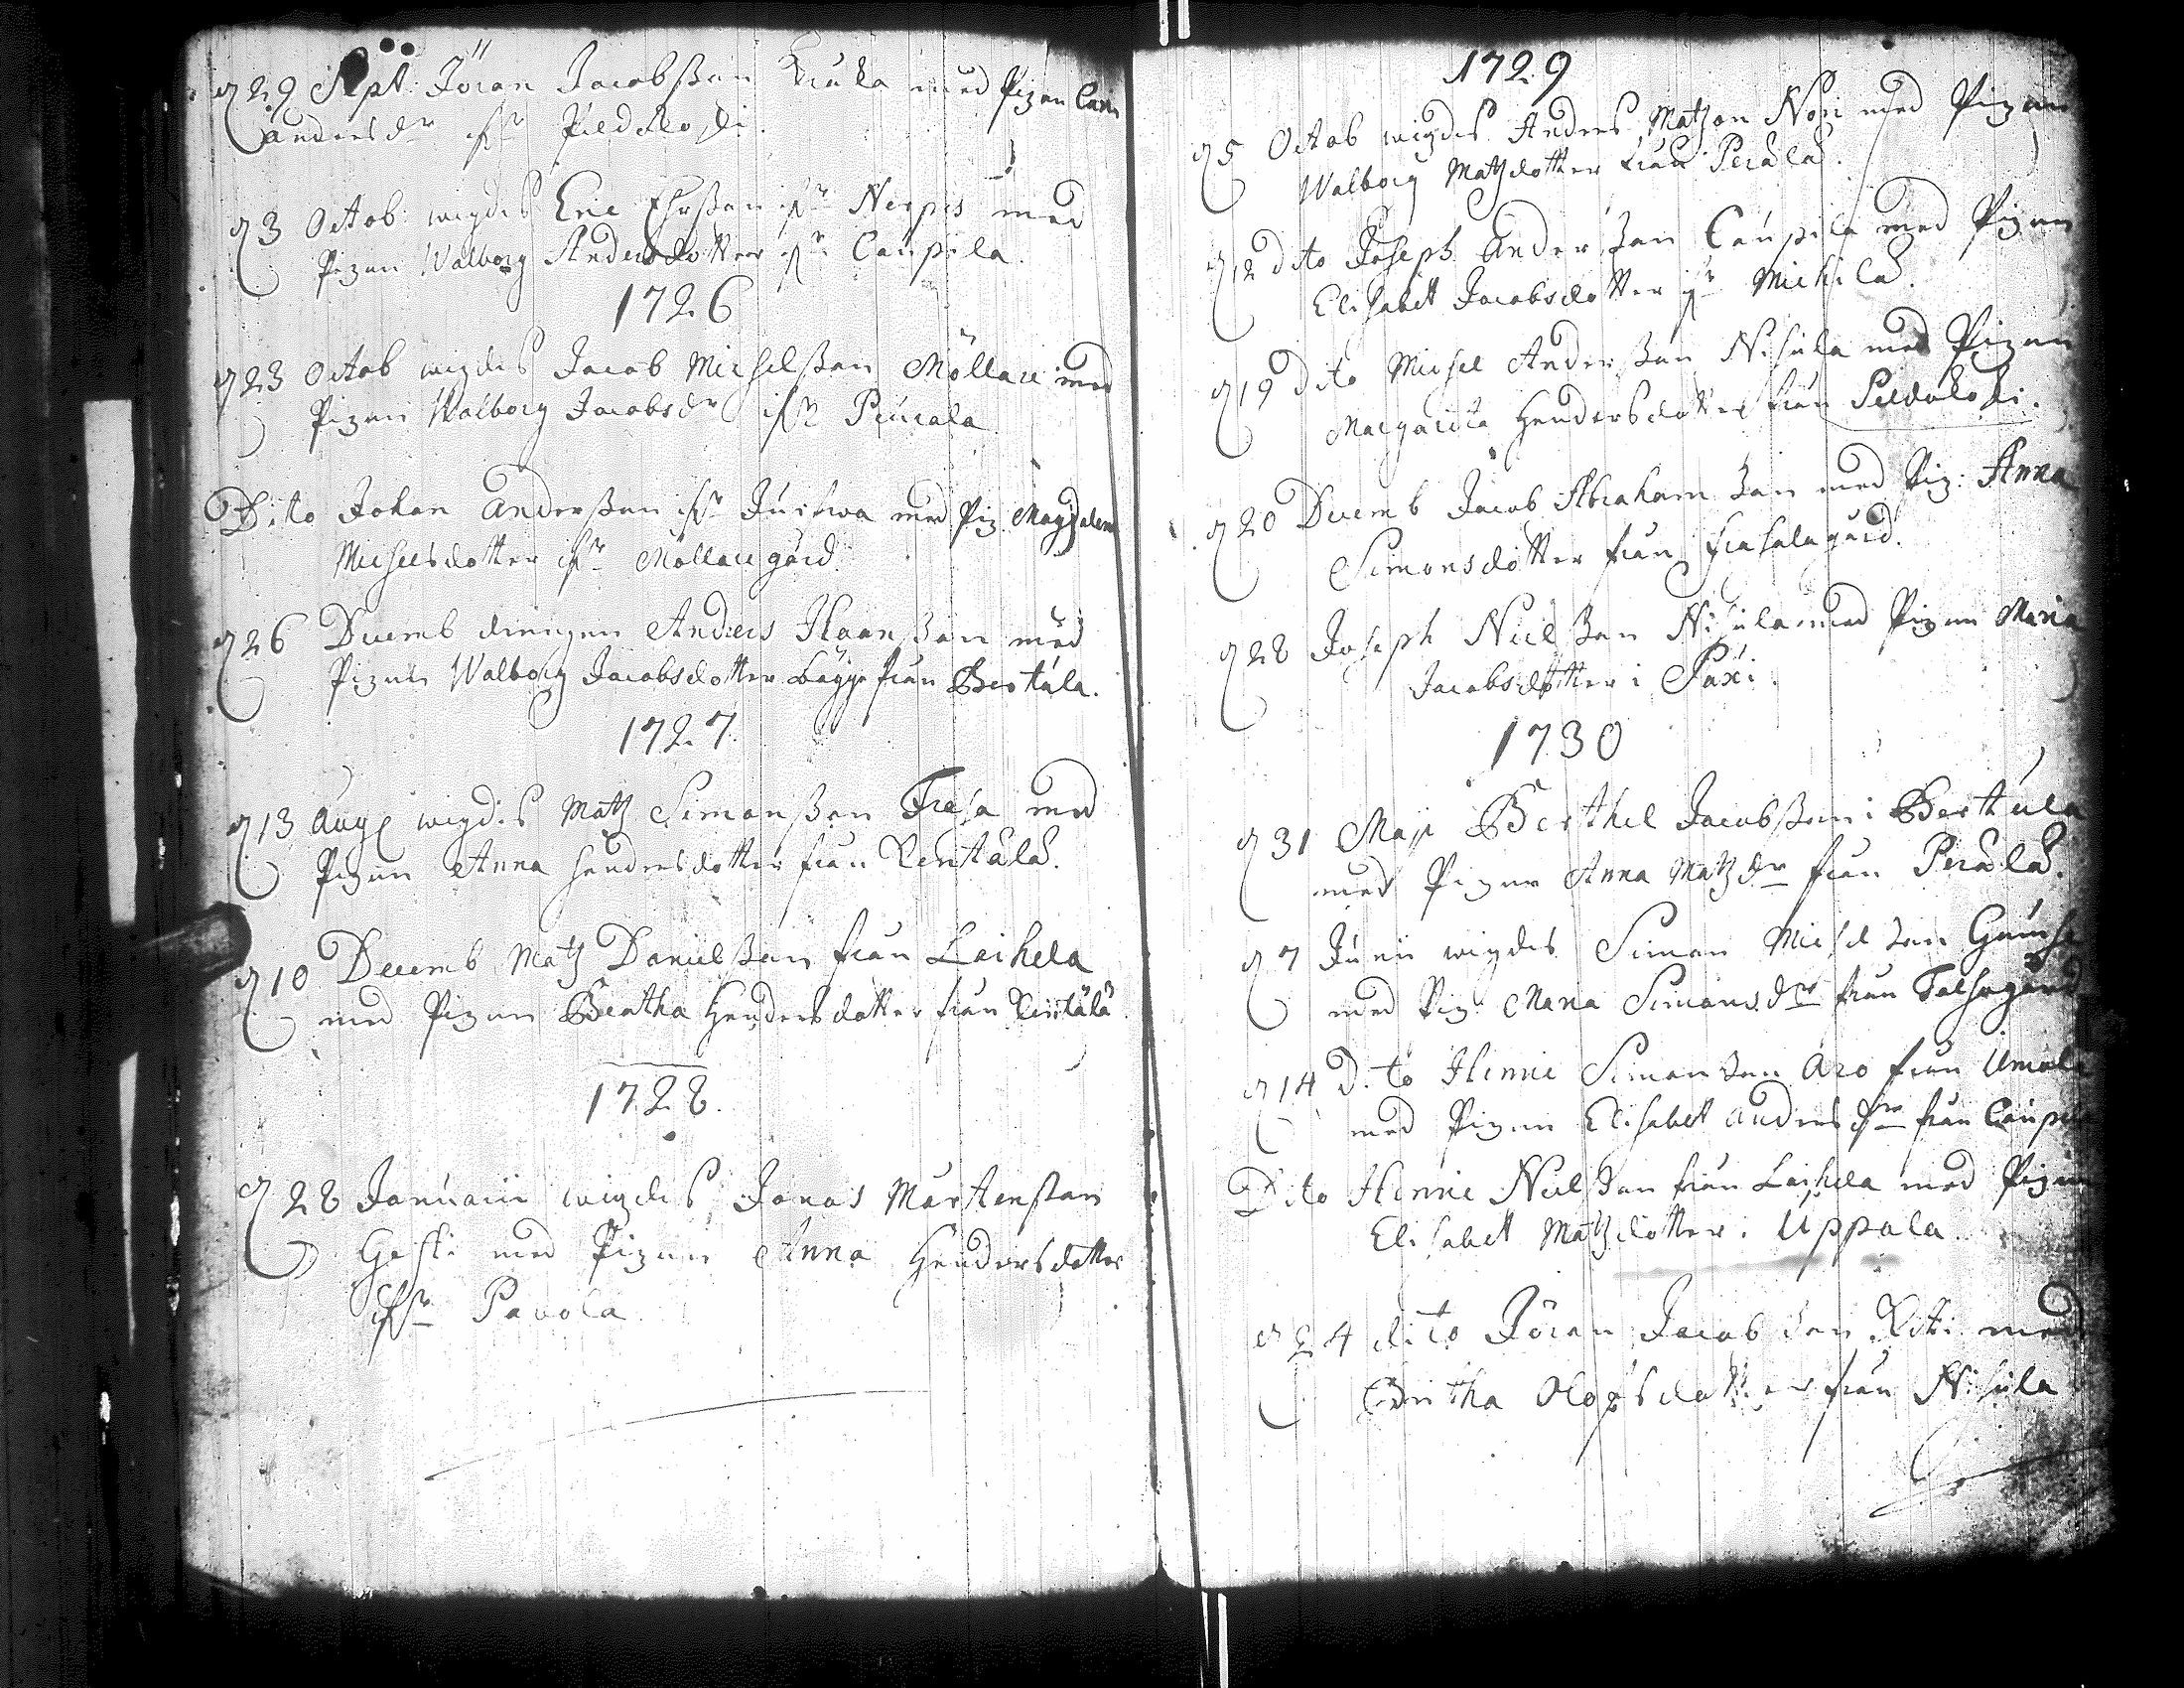 d 29 Sept: Jöran Jacobsson Kruka med Pigan Carin
Andersdr ifr Peldoloski.
d 3 Octob: wigdes Eric Ersson ifr Nerpis med
Pigan Walborg Andersdotter ifr Caupila.
1726
d 23 Octob wigdes Jacob Michelsson Möllari med
Pigan Walborg Jacobsdr ifr Peurala
Dito Johan Andersson ifr Juitwa med Pig. Magdalena
Michelsdotter ifr Mollarigård.
d 26 Decemb drengen Anders Haansson med
Pigan Walborg Jacobsdotter bägge från Bertula.
1727.
d 13 Aug wigdes Matz Simonsson Fresa med
Pigan Anna Hendersdotter från Rentälä.
d 10 Decemb Matz Danielsson från Laihela
med Pigan Beatha Hendersdotter från Rentälä.
1728.
d 28 Januarii wigdes Jonas Mårtensson
Gästi med Pigan Anna Hendersdotter
ifr Pavola
1729
d 5 Octob wigdes Anders Matzon Nori med Pigan
Walborg Matzdotter från Perälä.
d 12 dito Joseph Andersson Caupila med Pigan
Elisabet Jacobsdotter ifr Michilä.
d 19 dito Michel Andersson Nisula med Pigan
Margareta Hendersdotter från Peldoloski.
d 20 Decemb Jacob Abrahamsson med Pig: Anna
Simonsdotter från gård.
d 28 Joseph Nielsson Nisula med Pigan Maria
Jacobsdotter i Paxi.
1730
d 31 Maji Berthel Jacobsson i Bertula
med Pigan Anna Matzdr från Perälä.
d 7 Junii wigdes Simon Michelsson
med Pig. Maria Simonsdr från
d 14 D.to Hinric Simonsson Aro från
med Pigan Elisabet Andersdr från Caupila
Dito Hinric Nielsson från Laihela med Pigan
Elisabet Matzdotter i Uppala
d 24 dito Jöran Jacobsson med
Britha Olofsdotter från Nisula